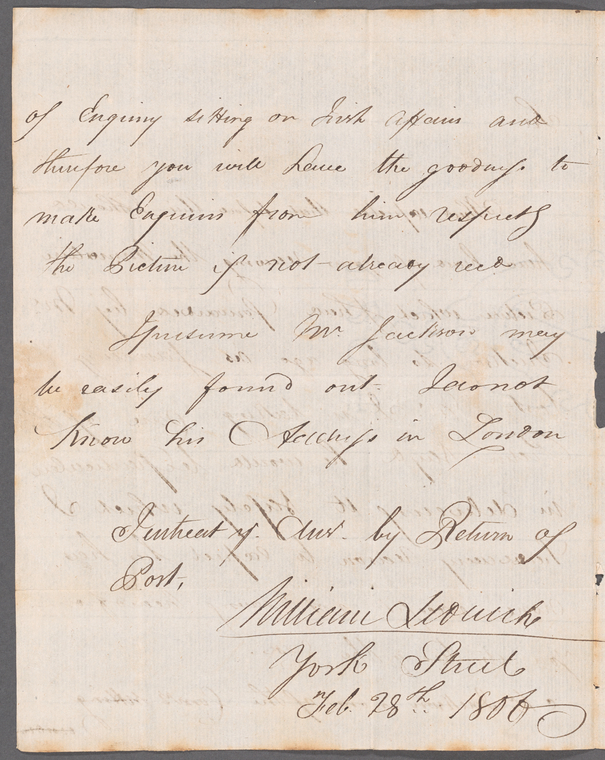 of Enquiry sitting on Irish Affairs and
therefore you will have the goodness to
make Enquiries from him respectg
the Picture if not already recd
I presume Mr. Jackson may
be easily found out. I do not
know his Address in London
I intreat yr. Answr. by Return of
Post,
William Ledwich
York Street
Feb. 28th 1806